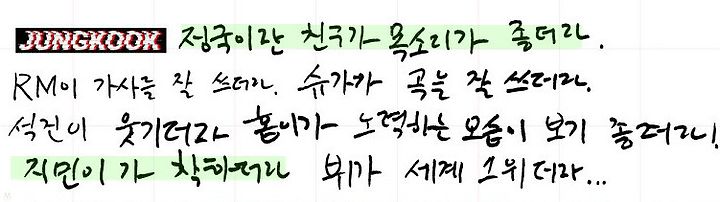 JUNGKOOK 정국이란 친구가 목소리가 좋더라.
RM이 가사를 잘 쓰더라. 슈가가 곡을 잘 쓰더라.
석진이 웃기더라 홉이가 노력하는 모습이 보기 좋더라!
지민이가 착하더라 뷔가 세계 1위더라...